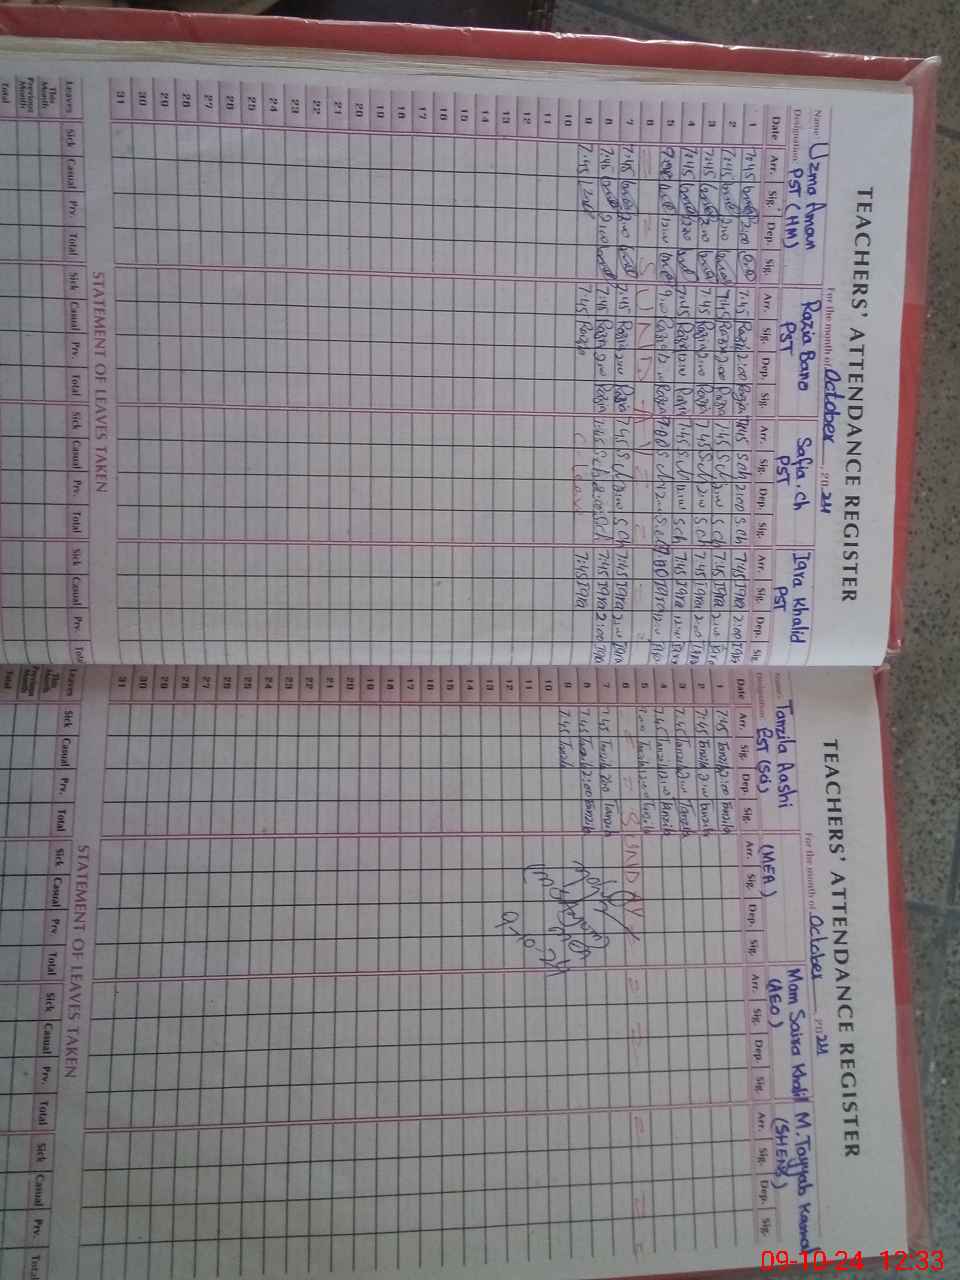 TEACHERS' ATTENDANCE REGISTER
For the month of October, 2024
Name Uzma Aman Razia Bano Safia.ch Iqra Khalid
Designation PST (HM) PST PST PST
Date Arr. Sig. Dep. Sig. Arr. Sig. Dep. Sig. Arr. Sig. Dep. Sig. Arr. Sig. Dep. Sig
1 7:45 2:00 7:45 Razia 2:00 Razia 7:45 S ch 2:00 S ch 7:45 Iqra 2:00 Iqra
2 7:45 2:00 7:45 Razia 2:00 Razia 7:45 S ch 2:00 S ch 7:45 Iqra 2:00 Iqra
3 7:45 2:00 7:45 Razia 2:00 Razia 7:45 S ch 2:00 S ch 7:45 Iqra 2:00 Iqra
4 7:45 12:00 7:45 Razia 12:00 Razia 7:45 S ch 12:00 S ch 7:45 Iqra 12:00 Iqra
5 9:00 12:00 9:00 Razia 12:00 Razia S ch 12:00 S ch Iqra 12:00 Iqra
6 = = S U N D A Y = =
7 7:45 2:00 7:45 Razia 2:00 Razia 7:45 S ch 2:00 S ch 7:45 Iqra 2:00 Iqra
8 7:45 2:00 7:45 Razia 2:00 Razia 7:45 S ch 2:00 S ch 7:45 Iqra 2:00 Iqra
9 7:45 7:45 Razia 7:45 Iqra
10
11
12
13
14
15
16
17
18
19
20
21
22
23
24
25
26
27
28
29
30
31
STATEMENT OF LEAVES TAKEN
Leaves Sick Casual Prv. Total Sick Casual Prv. Total Sick Casual Prv. Total Sick Casual Prv. Total
This Month
Previous Month
Total
TEACHERS' ATTENDANCE REGISTER
For the month of October, 2024
Name Tanzila Aashi (MEA) Mam Saira Khalil M.Tayyab Kamal
Designation PST (Sci) (AEO)
Date Arr. Sig. Dep. Sig. Arr. Sig. Dep. Sig. Arr. Sig. Dep. Sig. Arr. Sig. Dep. Sig.
1 7:45 Tanzila 2:00 Tanzila
2 7:45 Tanzila 2:00 Tanzila
3 7:45 Tanzila 2:00 Tanzila
4 7:45 Tanzila 12:00 Tanzila
5 9:00 Tanzila 12:00 Tanzila
6 = = S U N D A Y = = = =
7 7:45 Tanzila 2:00 Tanzila
8 7:45 Tanzila 2:00 Tanzila
9 7:45 Tanzila
10
11
12
13
14
15
16
17
18
19
20
21
22
23
24
25
26
27
28
29
30
31
STATEMENT OF LEAVES TAKEN
Leaves Sick Casual Prv. Total Sick Casual Prv. Total Sick Casual Prv. Total Sick Casual Prv. Total
This Month
Previous Month
Total
09-10-24 12:33